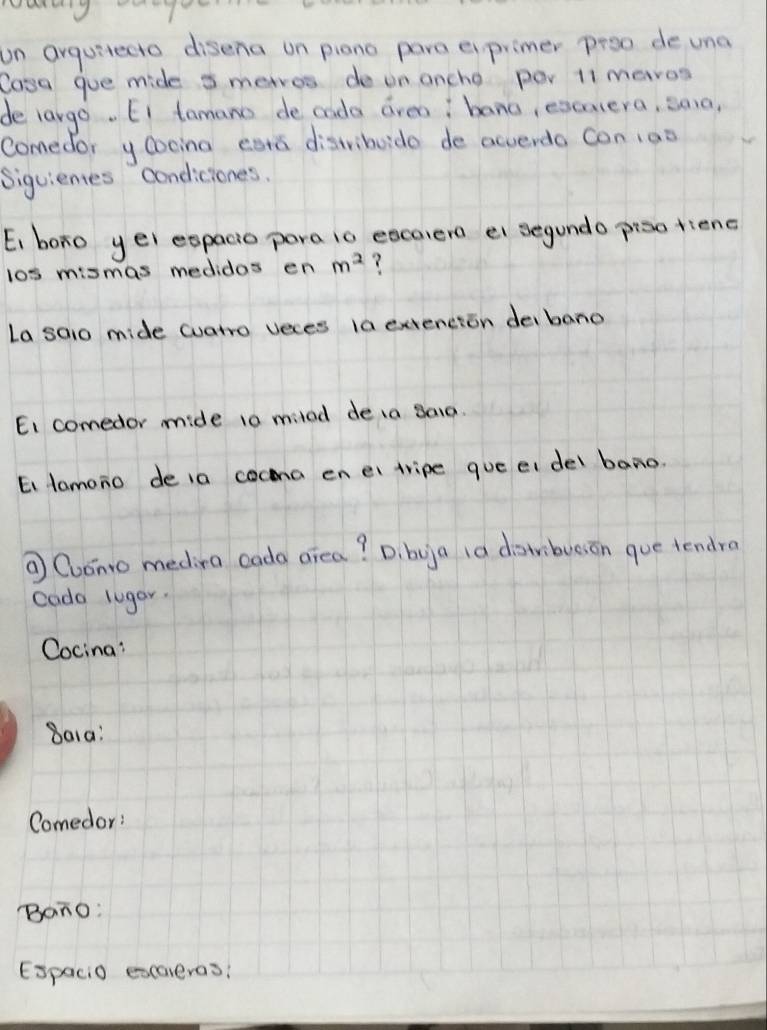 un arquitecto diseña un plano para el primer piso de una
Casa que mide 5 metros de un ancho por 11 metros
de largo. El tamano de cada área: bano, escalera, sala,
Comedor y cocina está distribuido de acuerdo Con las
Siguientes condiciones.
El baño y el espacio para la escalera el segundo piso tiene
los mismas medidas en m²?
La sala mide cuatro veces la extención del bano
El comedor mide la mitad de la sala.
El tamaño de la cocina en el tripe que el del baño.
a) Cuánto medira cada área? Dibuja la distribución que tendra
Cada lugar.
Cocina:
Sala:
Comedor:
Baño:
Espacio escaleras: